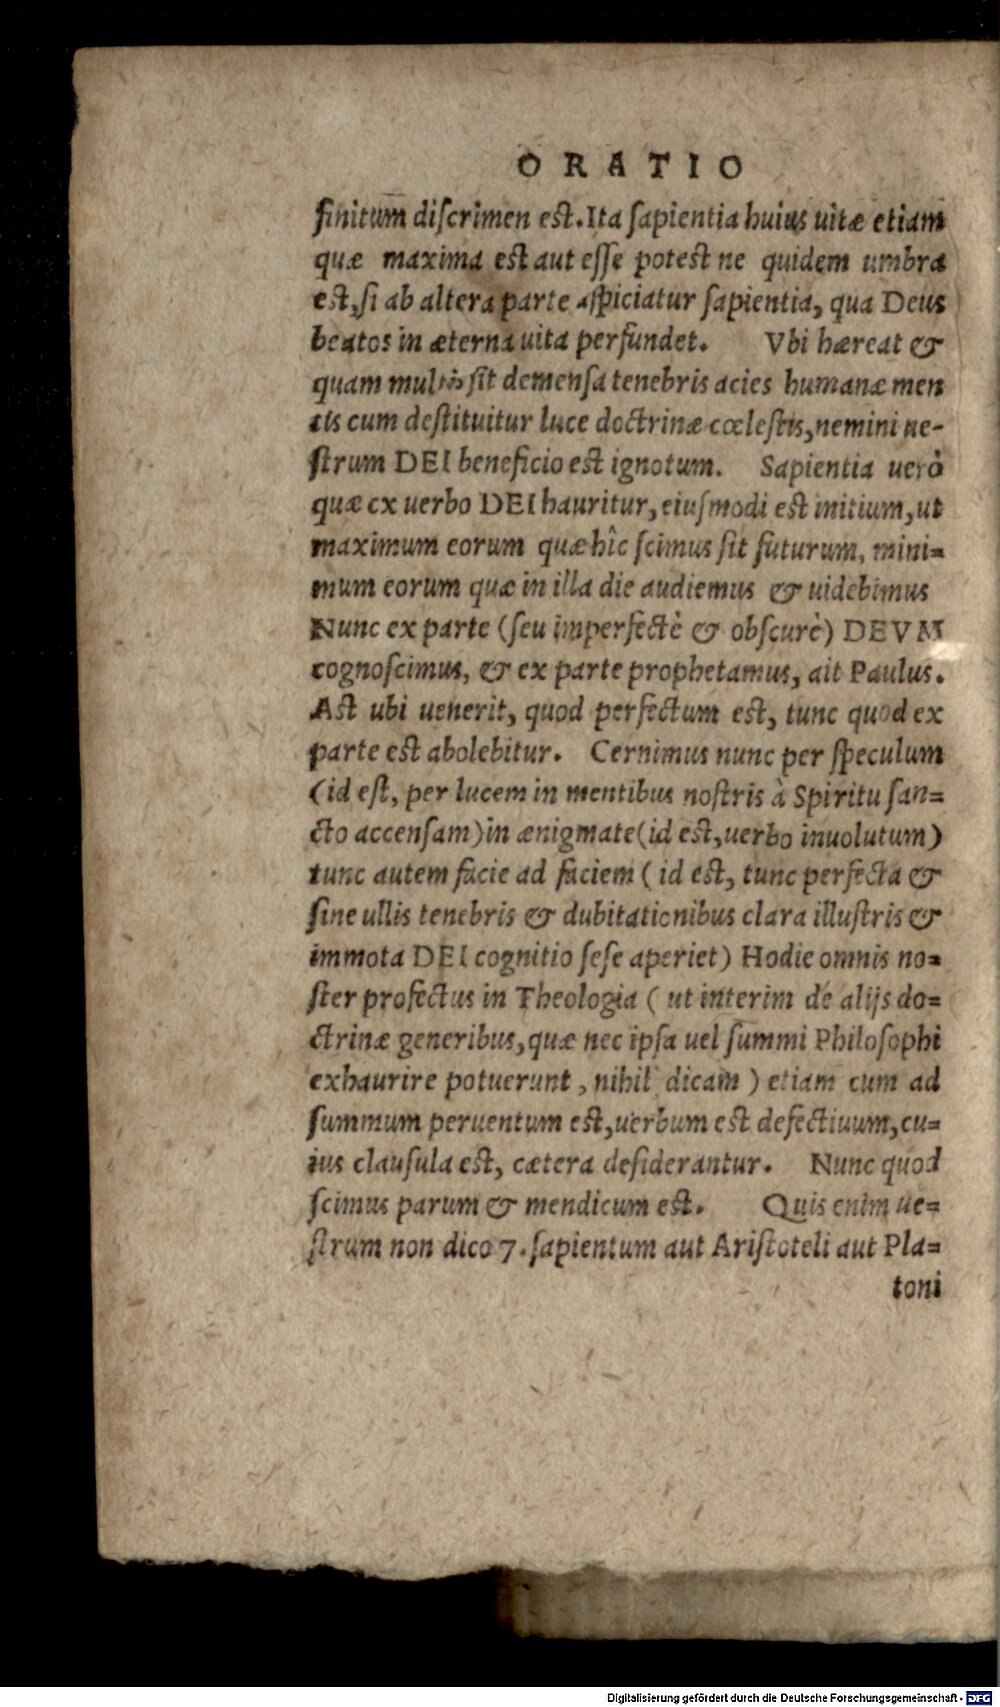 ORATIO
finitum diſcrimen est. Ita ſapientia huius uitæ etiam
quæ maxima est aut eſſe potest ne quidem umbra
est, ſi ab altera parte aſpiciatur ſapientia, qua Deus
beatos in æterna uita perfundet. Vbi hæreat &
quam multis ſit demenſa tenebris acies humanæ men
tis cum deſtituitur luce doctrinæ cœleſtis, nemini ue-
ſtrum DEI beneficio est ignotum. Sapientia uerò
quæ ex uerbo DEI hauritur, eiuſmodi est initium, ut
maximum eorum quæ hîc ſcimus ſit futurum, mini=
mum eorum quæ in illa die audiemus & uidebimus
Nunc ex parte (ſeu imperfectè & obſcurè) DEVM
cognoſcimus, & ex parte prophetamus, ait Paulus.
Ast ubi uenerit, quod perfectum est, tunc quod ex
parte est abolebitur. Cernimus nunc per ſpeculum
(id eſt, per lucem in mentibus noſtris à Spiritu ſan=
cto accenſam) in ænigmate (id est, uerbo inuolutum)
tunc autem facie ad faciem ( id est, tunc perfecta &
ſine ullis tenebris & dubitationibus clara illuſtris &
immota DEI cognitio ſeſe aperiet) Hodie omnis no=
ſter profectus in Theologia ( ut interim de alijs do=
ctrinæ generibus, quæ nec ipſa uel ſummi Philoſophi
exhaurire potuerunt, nihil dicam ) etiam cum ad
ſummum peruentum est, uerbum est defectiuum, cu=
ius clauſula est, cætera deſiderantur. Nunc quod
ſcimus parum & mendicum est. Quis enim ue=
ſtrum non dico 7. ſapientum aut Ariſtoteli aut Pla=
toni
Digitalisierung gefördert durch die Deutsche Forschungsgemeinschaft - DFG